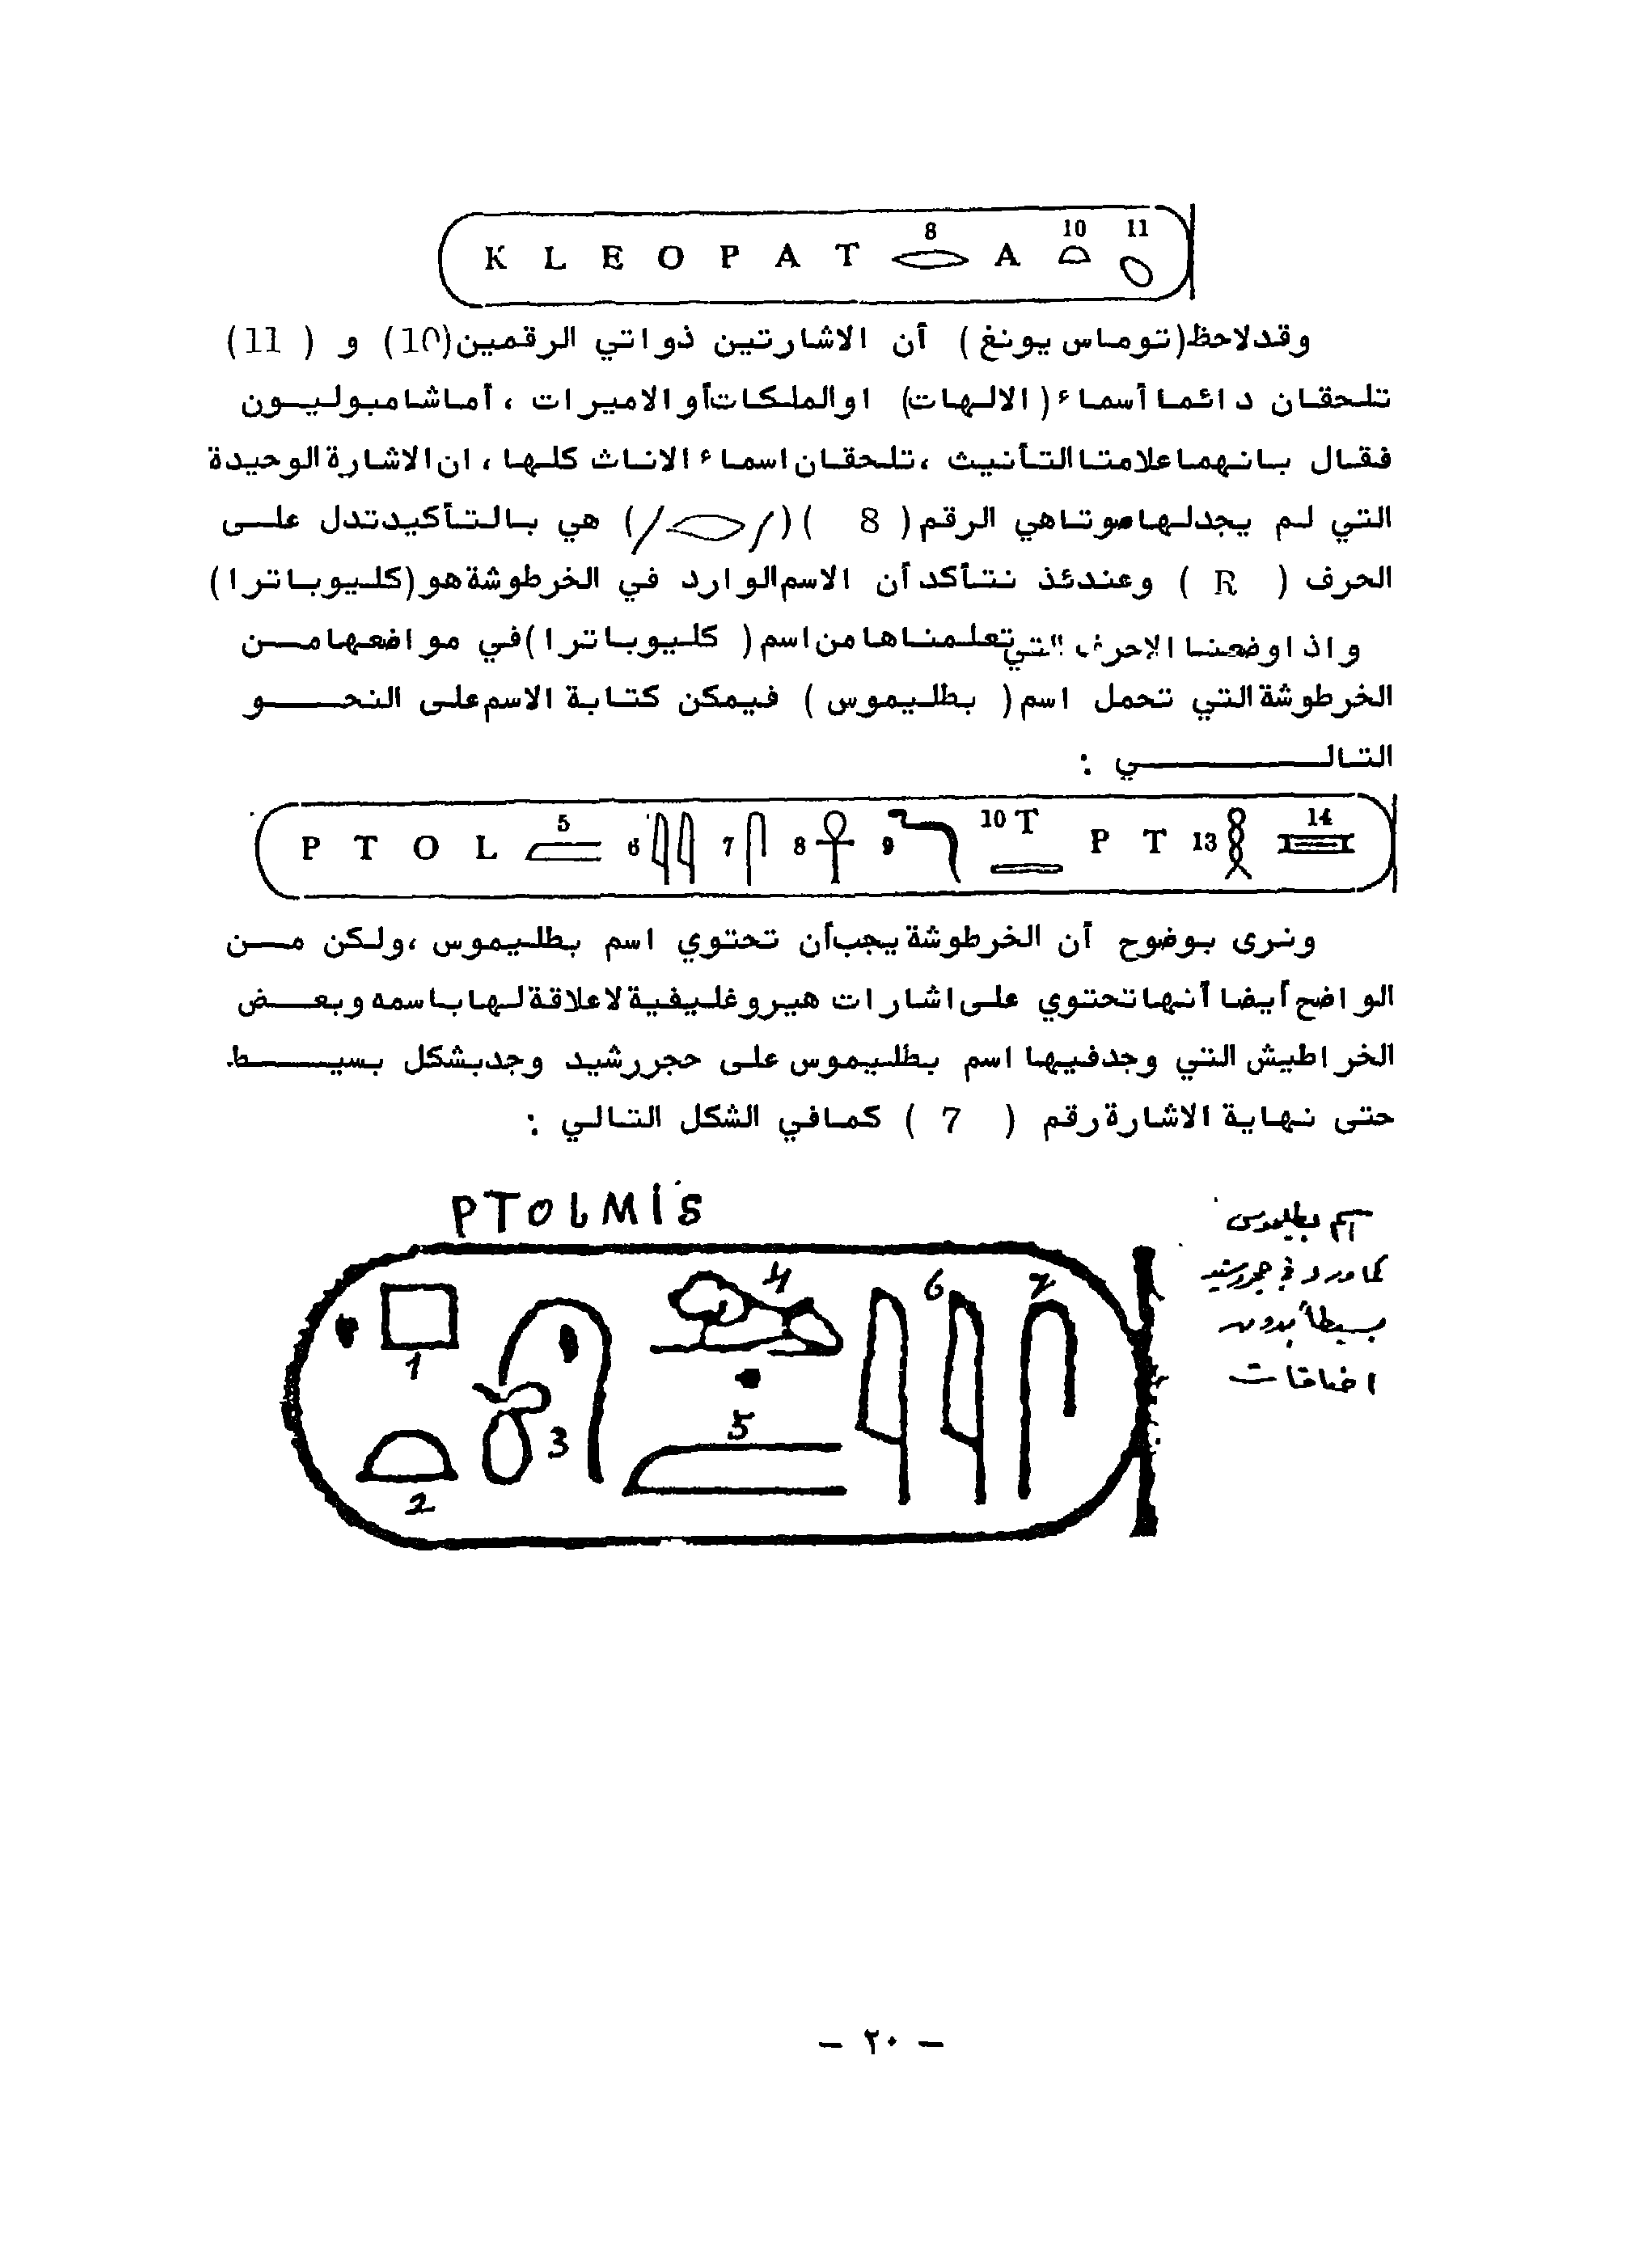 K L E O P A T 8 A 10 11
وقد لاحظ (توماس يونغ) أن الاشارتين ذواتي الرقمين (10) و (11)
تلحقان دائما أسماء (الالهات) او الملكات أو الاميرات ، أما شامبوليون
فقال بانهما علامتا التأنيث ، تلحقان اسماء الاناث كلها ، ان الاشارة الوحيدة
التي لم يجد لها صوتا هي الرقم ( 8 ) ( / / ) هي بالتأكيد تدل على
الحرف ( R ) وعندئذ نتأكد أن الاسم الوارد في الخرطوشة هو (كليوباترا)
واذا وضعنا الاحرف التي تعلمناها من اسم ( كليوباترا ) في مواضعها من
الخرطوشة التي تحمل اسم ( بطليموس ) فيمكن كتابة الاسم على النحو
التالي :
P T O L 5 6 7 8 9 10 T P T 13 14
ونرى بوضوح أن الخرطوشة يجب أن تحتوي اسم بطليموس ، ولكن من
الواضح أيضا أنها تحتوي على اشارات هيروغليفية لا علاقة لها باسمه وبعض
الخراطيش التي وجد فيها اسم بطليموس على حجر رشيد وجد بشكل بسيط
حتى نهاية الاشارة رقم ( 7 ) كما في الشكل التالي :
PTOLMIS
اسم بطليموس
كما ورد في حجر رشيد
بسيطا بدون
اضافات
1 2 3 4 5 6 7
— ٢٠ —